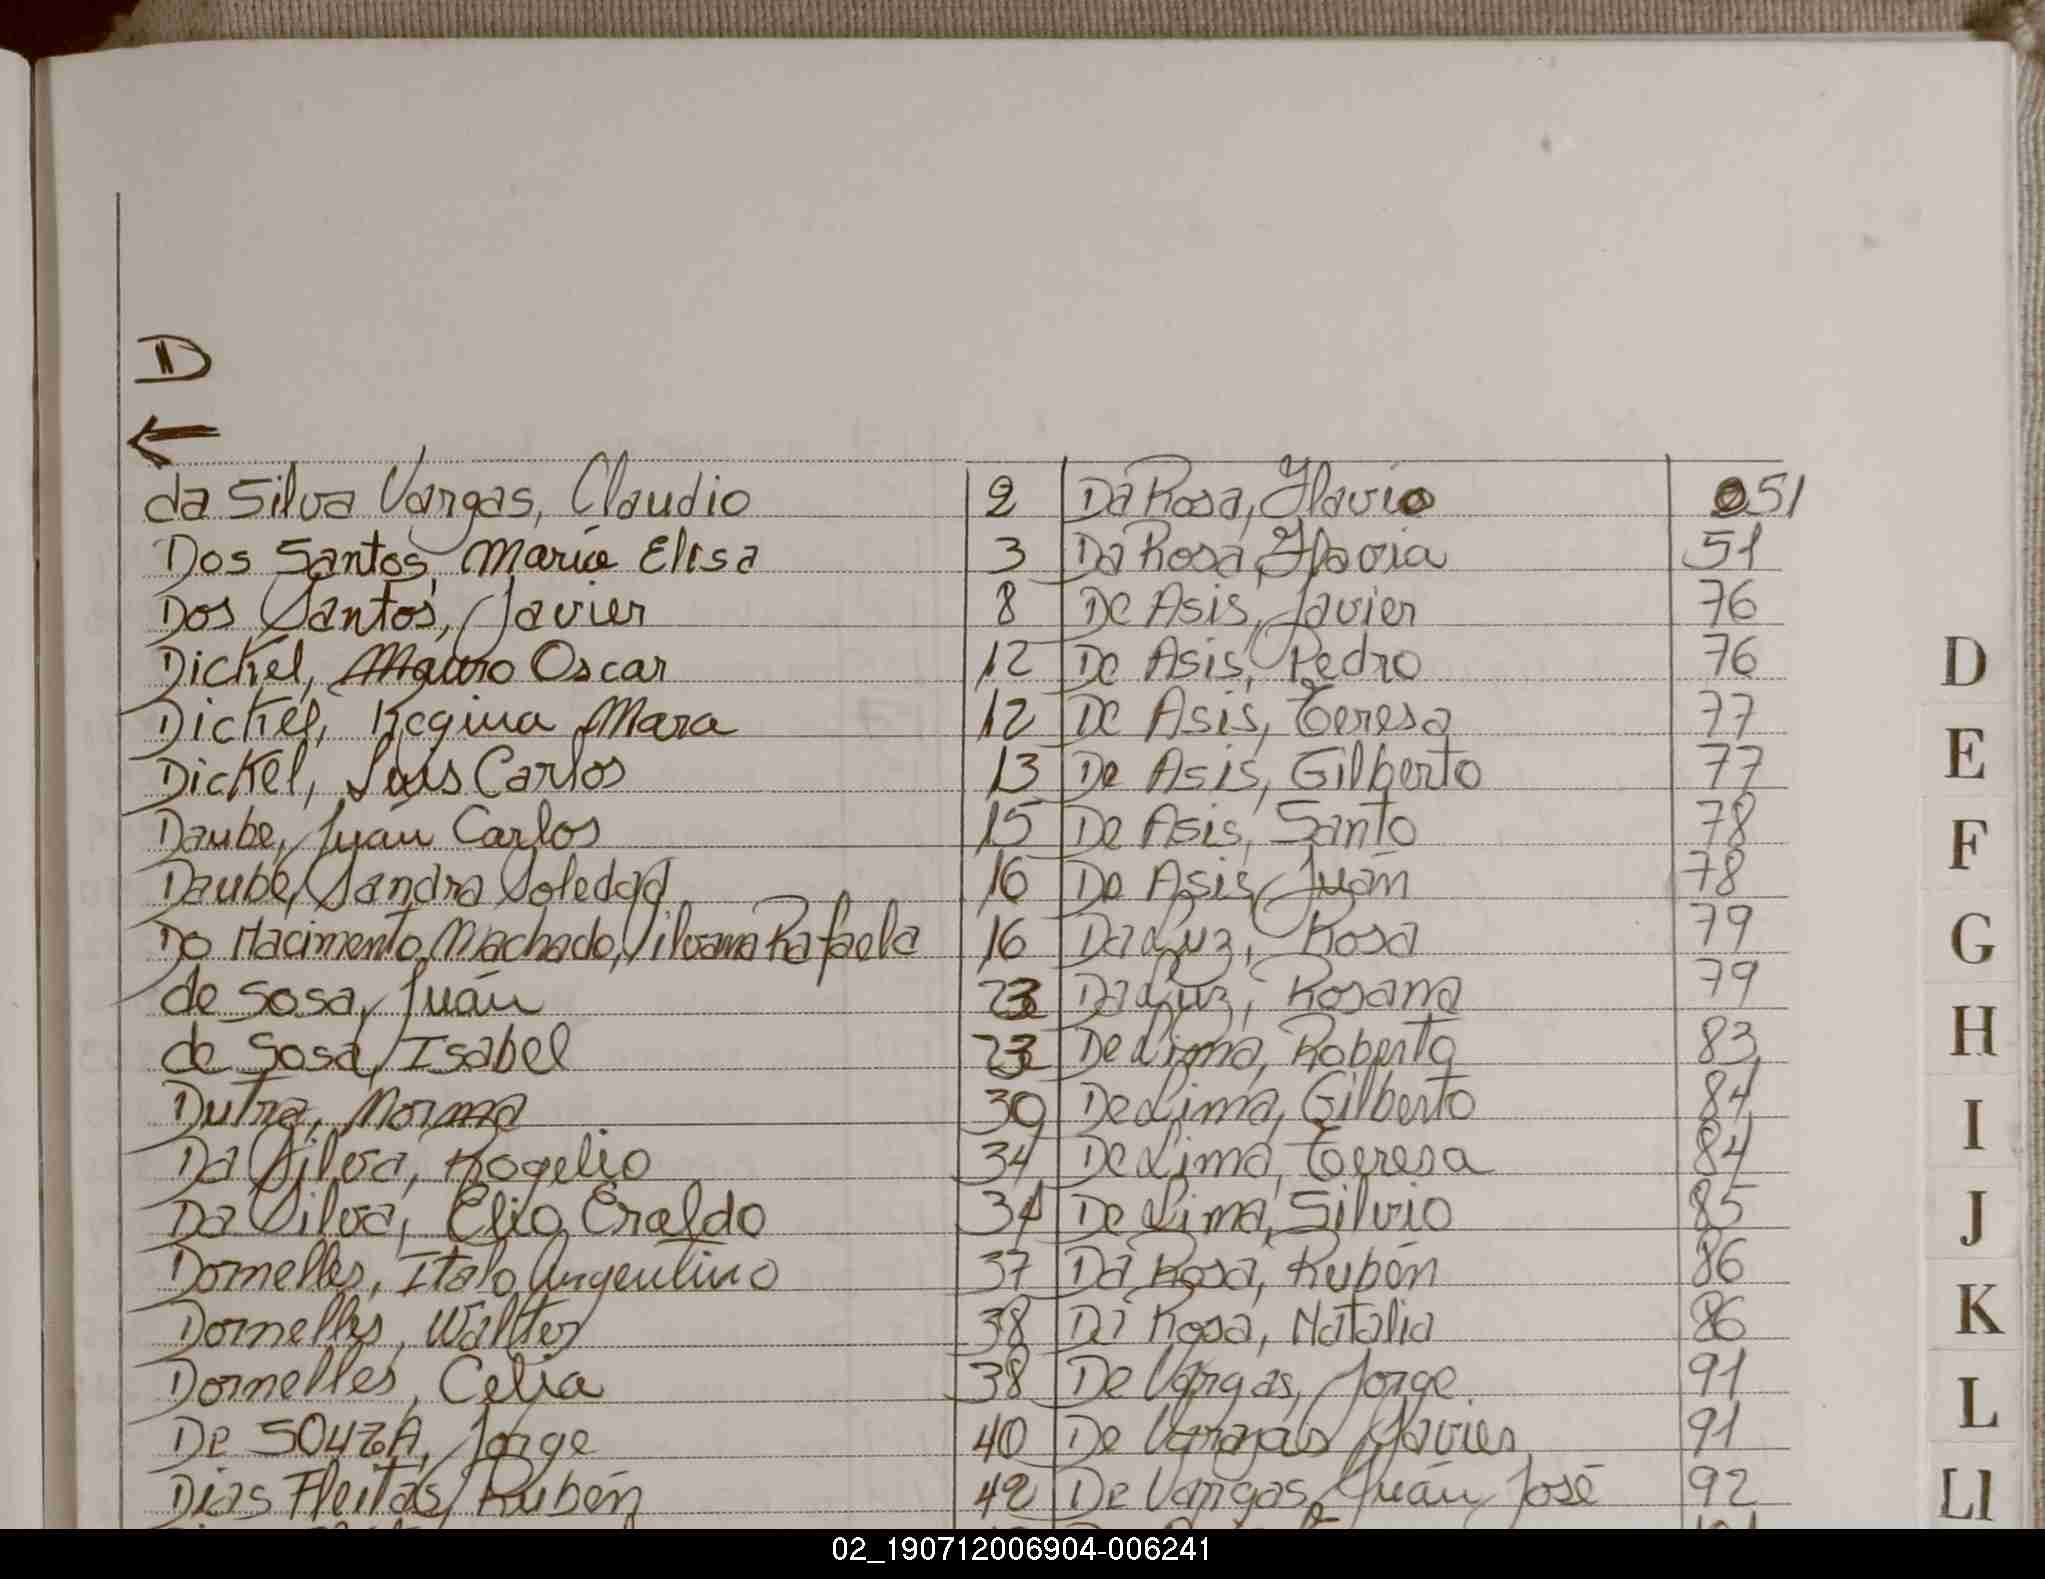 D
←
da Silva Vargas, Claudio 2 Da Rosa, Flavio 051
Dos Santos, María Elisa 3 Da Rosa, Flavia 51
Dos Santos, Javier 8 De Asis, Javier 76
Dickel, Mauro Oscar 12 De Asis, Pedro 76
Dickel, Regina Mara 12 De Asis, Teresa 77
Dickel, Luis Carlos 13 De Asis, Gilberto 77
Daube, Juan Carlos 15 De Asis, Santo 78
Daube, Sandra Soledad 16 De Asis, Juan 78
Do Nacimento Machado, Silvana Rafaela 16 Da Luz, Rosa 79
de Sosa, Juan 23 Da Luz, Rosana 79
de Sosa, Isabel 23 De Lima, Roberto 83
Dutra, Norma 30 De Lima, Gilberto 84
Da Silva, Rogelio 34 De Lima, Teresa 84
Da Silva, Elio Eraldo 34 De Lima, Silvio 85
Dornelles, Italo Argentino 37 Da Rosa, Rubén 86
Dornelles, Walter 38 Da Rosa, Natalia 86
Dornelles, Celia 38 De Vargas, Jorge 91
De SOUZA, Jorge 40 De Vargas Javier 91
Dias Fleitas, Rubén 42 De Vargas, Juan José 92
D
E
F
G
H
I
J
K
L
Ll
02_190712006904-006241